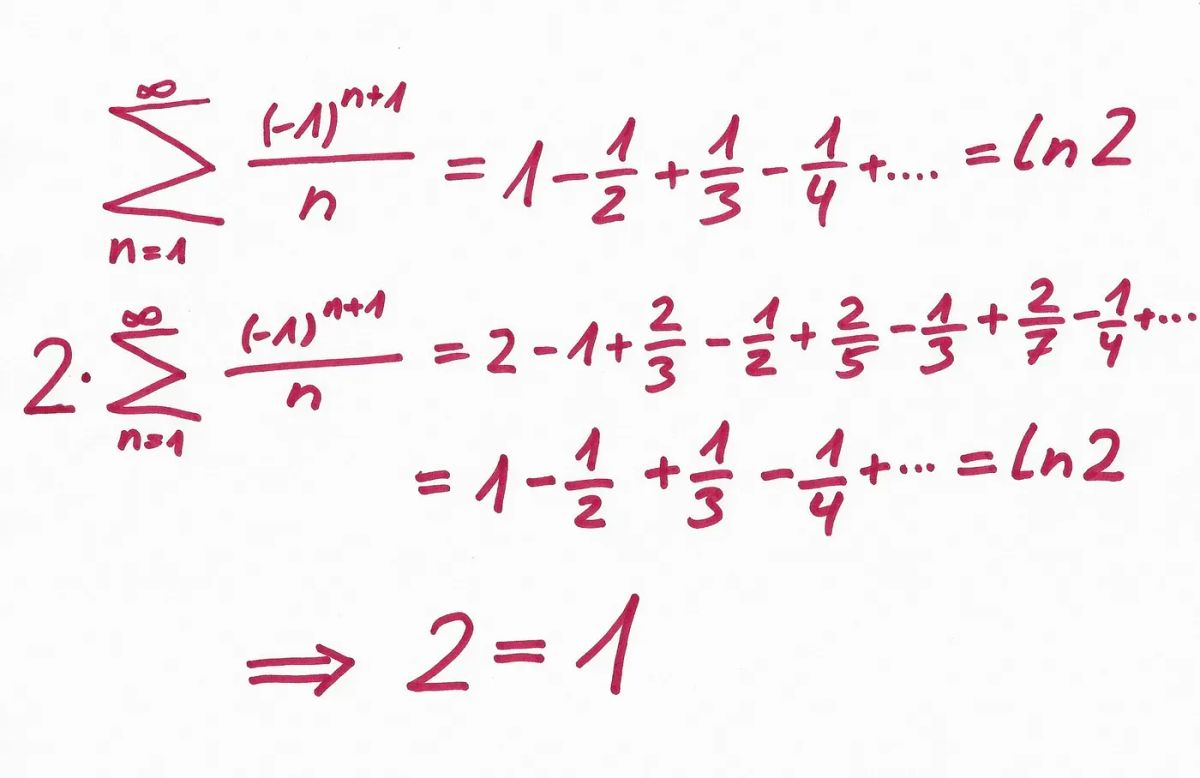 ∞∑n=1 (-1)^(n+1)/n = 1 - 1/2 + 1/3 - 1/4 + .... = ln 2
2 · ∞∑n=1 (-1)^(n+1)/n = 2 - 1 + 2/3 - 1/2 + 2/5 - 1/3 + 2/7 - 1/4 + ...
= 1 - 1/2 + 1/3 - 1/4 + ... = ln 2
⇒ 2 = 1